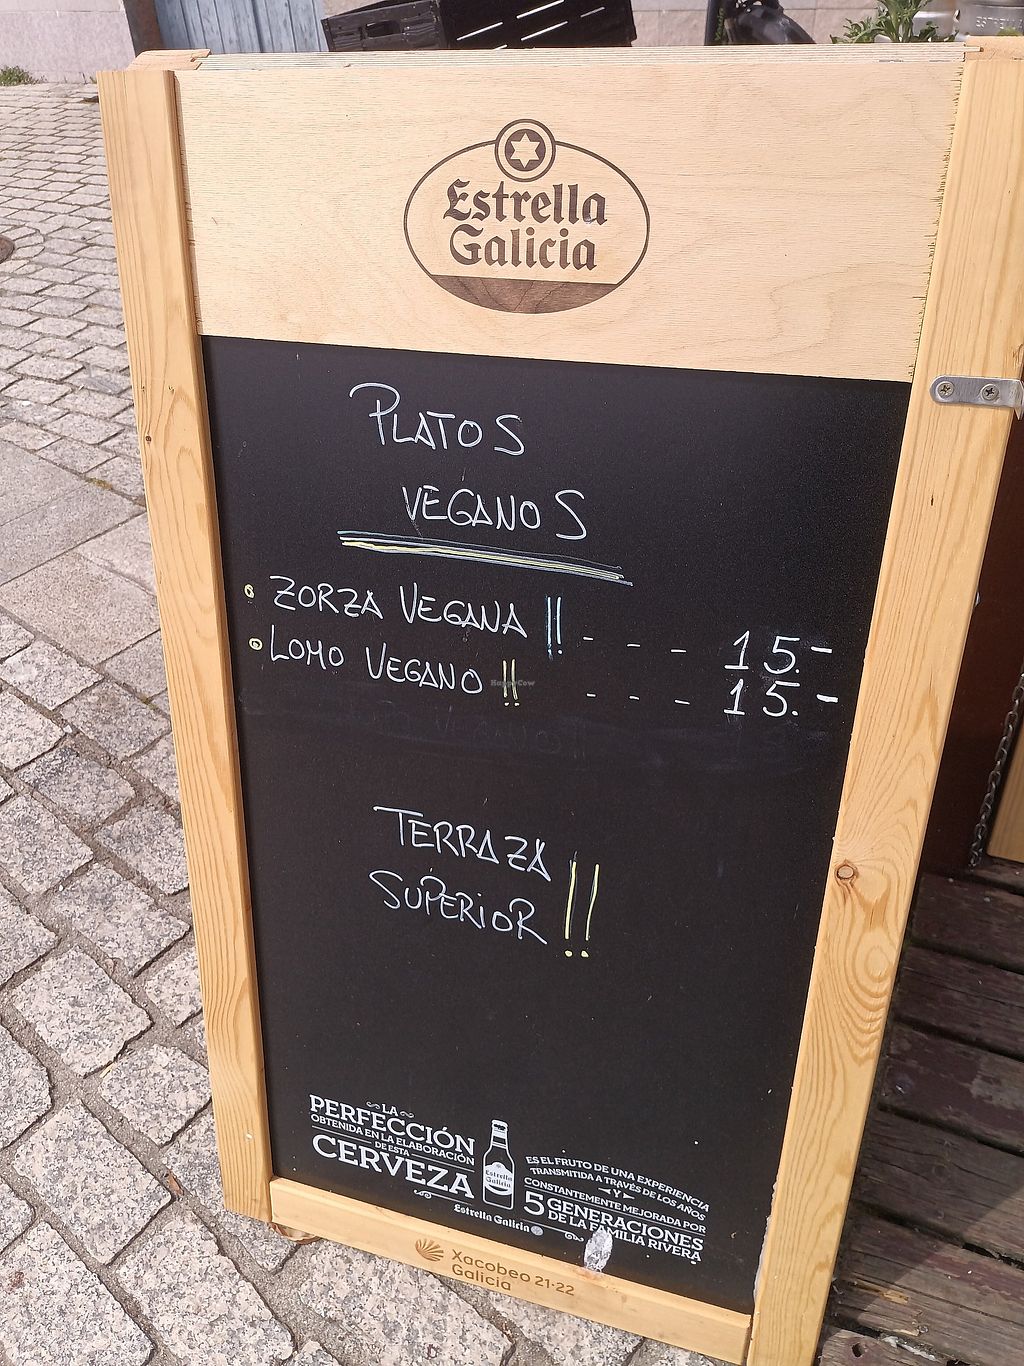 Estrella
Galicia
PLATOS
VEGANOS
• ZORZA VEGANA !! - - - 15.-
• LOMO VEGANO !! - - - 15.-
TERRAZA
SUPERIOR !!
LA
PERFECCIÓN
OBTENIDA EN LA ELABORACIÓN
DE ESTA
CERVEZA
Estrella Galicia
Estrella
Galicia
ES EL FRUTO DE UNA EXPERIENCIA
TRANSMITIDA A TRAVÉS DE LOS AÑOS
Y
CONSTANTEMENTE MEJORADA POR
5 GENERACIONES
DE LA FAMILIA RIVERA
Xacobeo 21·22
Galicia
HappyCow